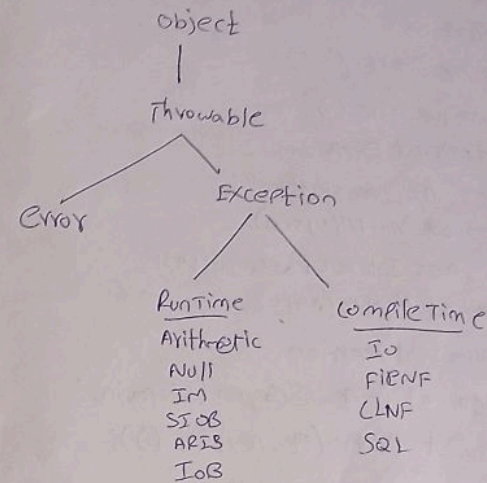 Object
Throwable
Error
Exception
RunTime
Arithmetic
Null
IM
SIOB
ARIB
IOB
CompileTime
IO
FileNF
CLNF
SQL